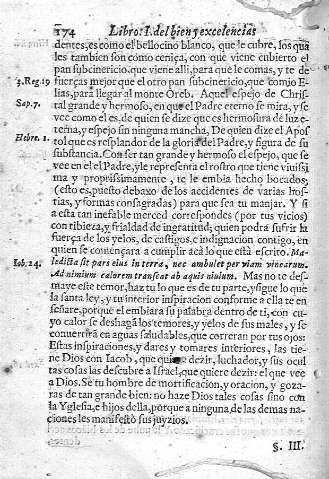 174 Libro. I. del bien y excelencias
dentes, es como el bellocino blanco, que le cubre, los qua
les tambien son como ceniça, con que viene cubierto el
pan subcinericio, que viene alli, para que le comas, y te de
3. Reg. 19 fuerças mejor que el otro pan subcinericio, que comio E
lias, para llegar al monte Oreb. Aquel espejo de Chris-
Sap. 7. tal grande y hermoso, en que el Padre eterno se mira, y se
vee como el es, de quien se dize que es hermosura de luz e-
terna, y espejo sin ninguna mancha, De quien dize el Apos
Hebre. 1. tol que es resplandor de la gloria del Padre, y figura de su
substancia. Con ser tan grande y hermoso el espejo, que se
vee en el el Padre, y le representa el rostro que tiene viuissi
ma y propiissimamente, te le embia hecho bocados,
(esto es, puesto debaxo de los accidentes de varias hos-
tias, y formas consagradas) para que sea tu manjar. Y si
a esta tan inefable merced correspondes (por tus vicios)
con tibieza, y frialdad de ingratitud; quien podra sufrir la
fuerça de los yelos, de castigos, e indignacion contigo, en
quien se començara a cumplir aca lo que està escrito. Ma-
Iob. 24. ledicta sit pars eius in terra, nec ambulet per viam vinearum.
Ad nimium calorem transeat ab aquis niuium. Mas no te des-
maye este temor, haz tu lo que es de tu parte, y sigue lo que
la santa ley, y tu interior inspiracion conforme a ella te en
señare, porque el embiara su palabra dentro de ti, con cu-
yo calor se deshagã los temores, y yelos de sus males, y se
conuertirà en aguas saludables, que correran por tus ojos:
Estas inspiraciones, y dares y tomares interiores, las tie-
ne Dios con Iacob, que quiere dezir, luchador, y sus ocul
tas cosas las descubre a Israel, que quiere dezir: el que vee
a Dios. Se tu hombre de mortificacion, y oracion, y goza-
ras de tan grande bien: no haze Dios tales cosas sino con
la Yglesia, e hijos della, porque a ninguna de las demas na-
ciones les manifestò sus juyzios.
§. III.